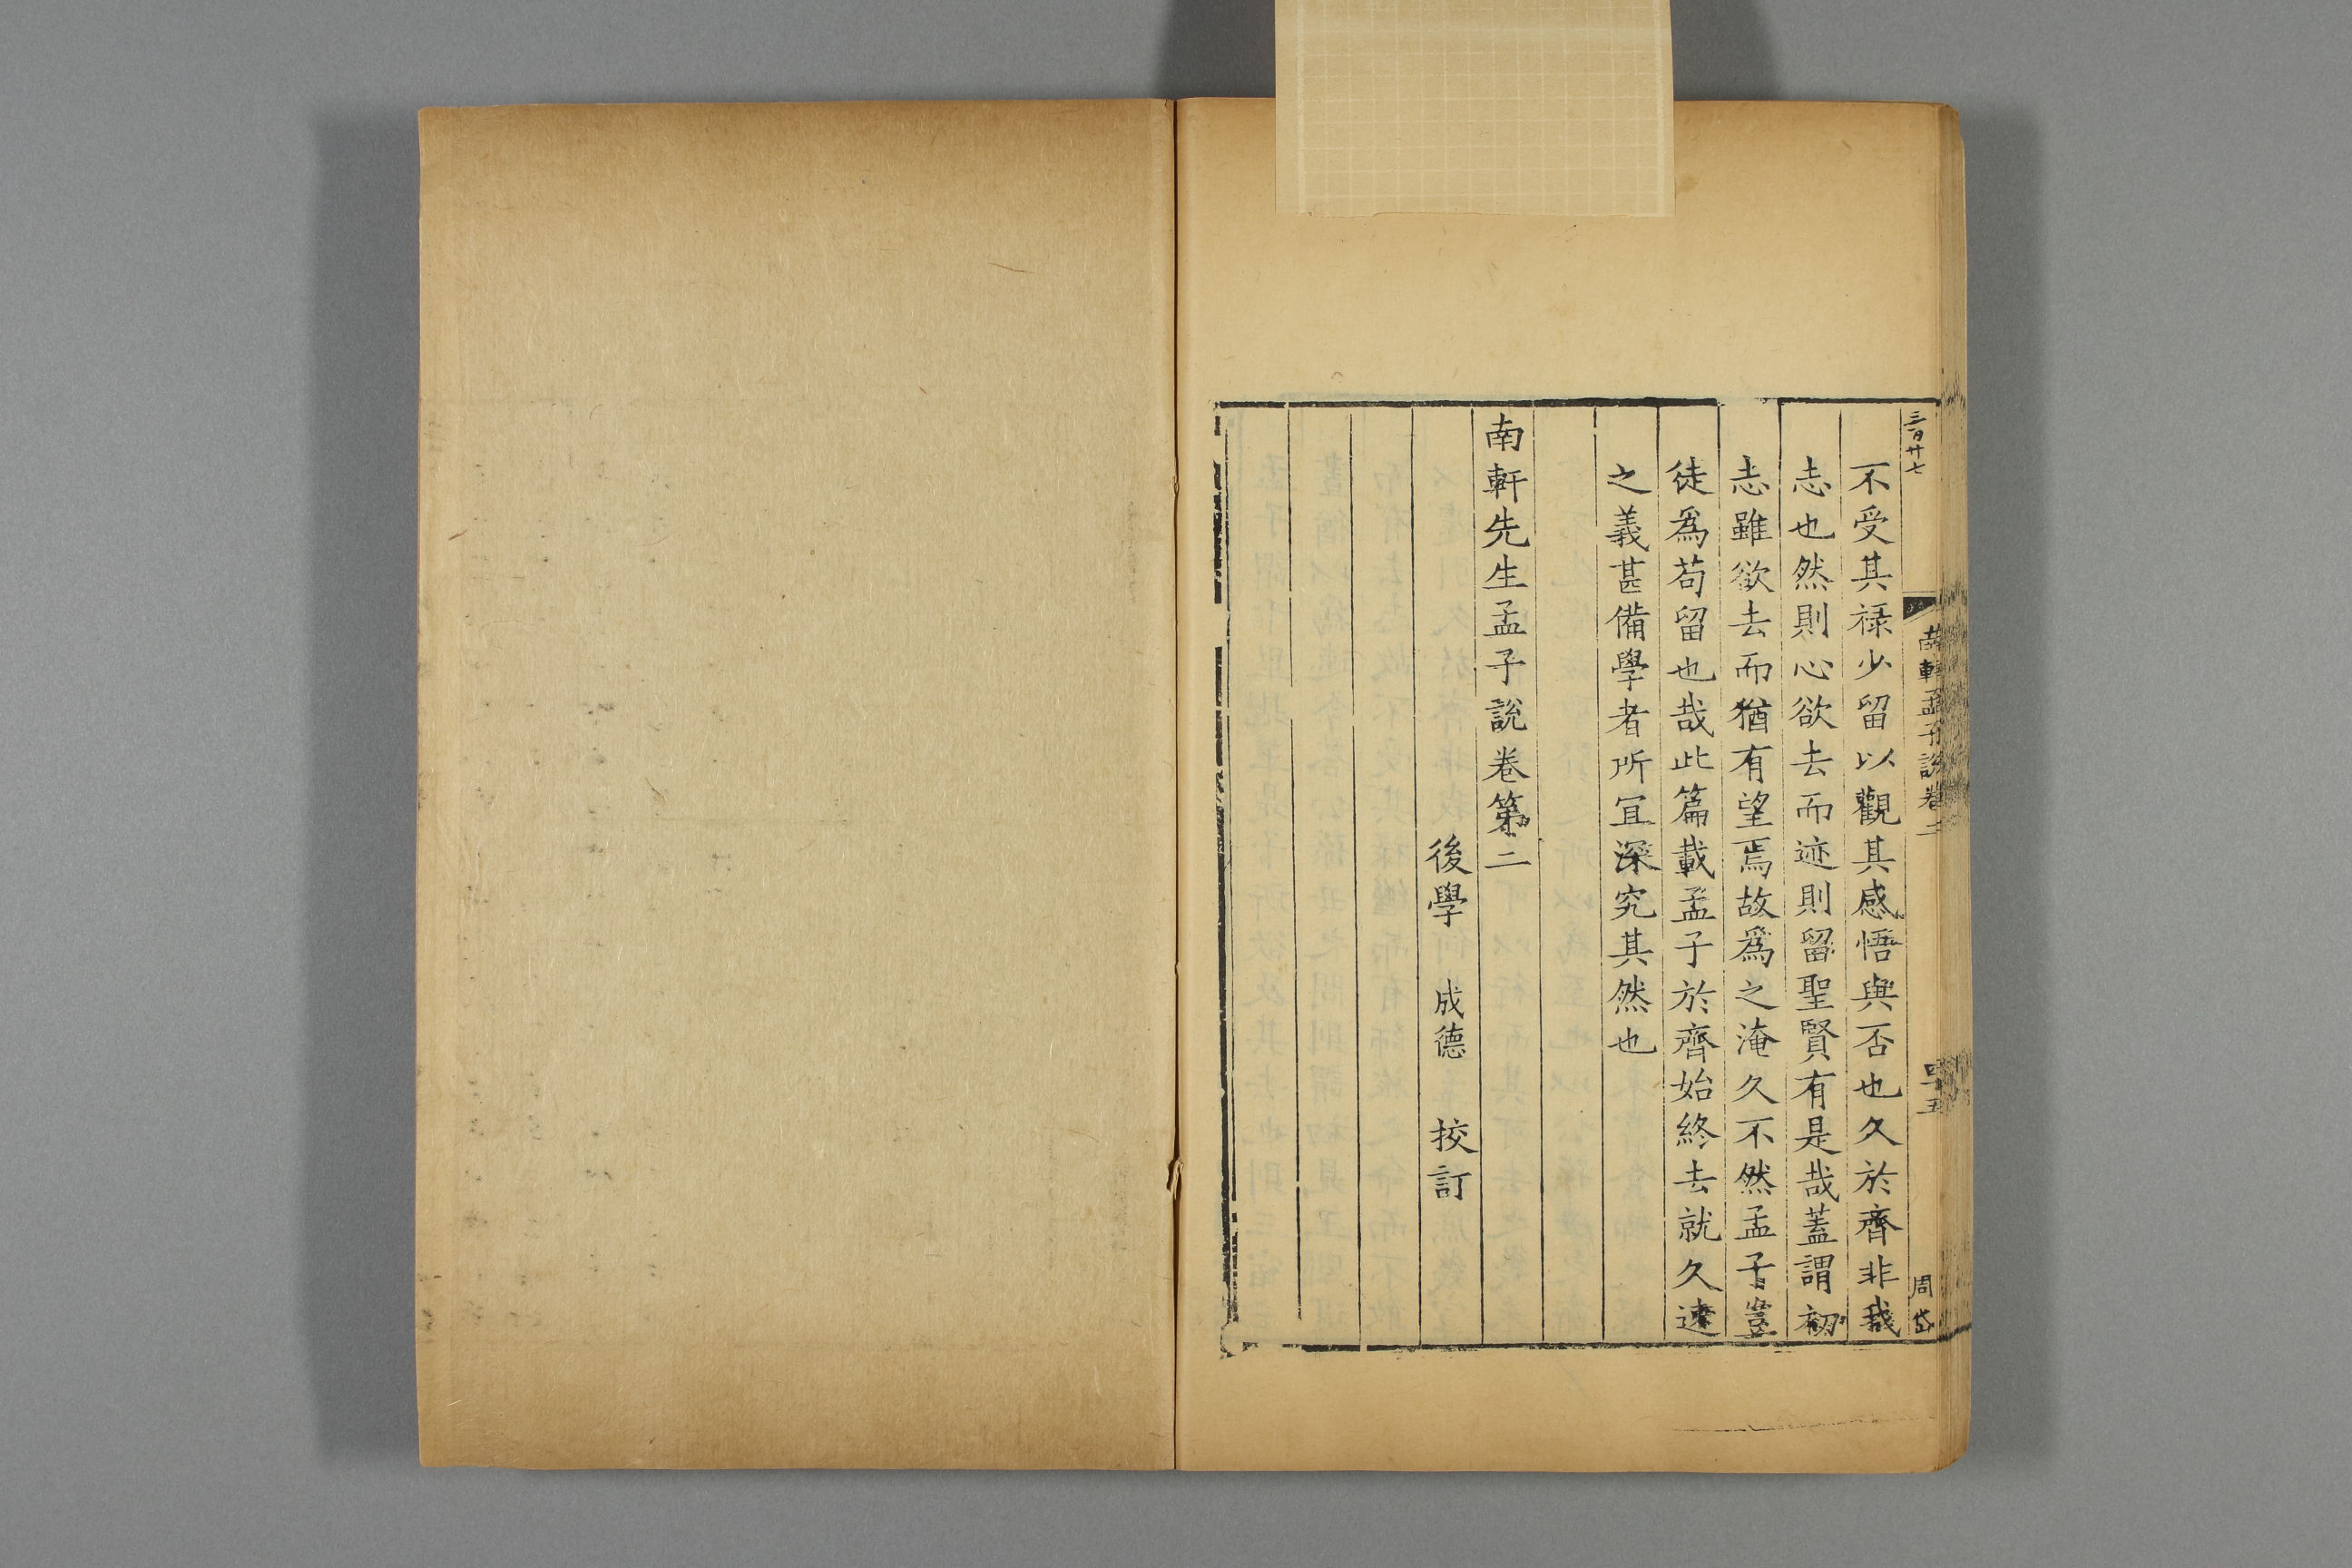 三百廿七
南軒孟子說卷二
四十五
周岱
不受其祿少留以觀其感悟與否也久於齊非我
志也然則心欲去而迹則留聖賢有是哉蓋謂初
志雖欲去而猶有望焉故爲之淹久不然孟子豈
徒爲苟留也哉此篇載孟子於齊始終去就久速
之義甚備學者所宜深究其然也
南軒先生孟子說卷第二
後學 成德 挍訂